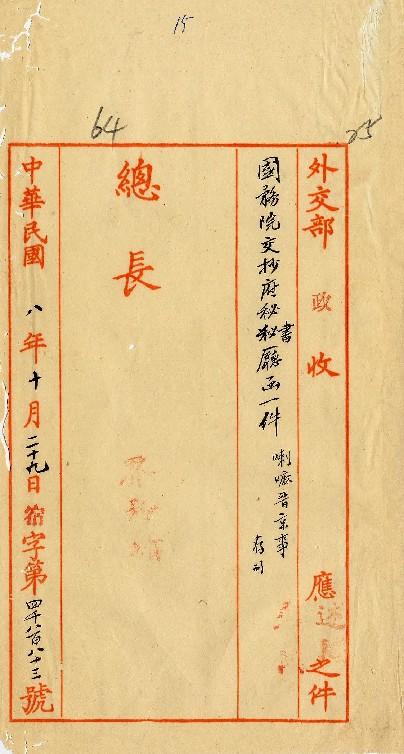 15
64
25
外交部 政 收 應 送 之件
國務院交抄府秘書廳函一件 喇嘛晋京事 存
總長
中華民國 八年十月二十九日宿字第四千八百八十三號